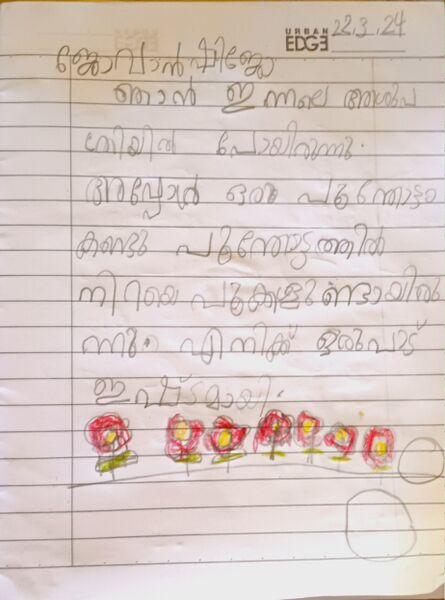 URBAN
EDGE
22.3.24
ജോവാൻ ഷിജോ
ഞാൻ ഇന്നലെ ആശുപ
ത്രിയിൽ പോയിരുന്നു.
അപ്പോൾ ഒരു പൂന്തോട്ടം
കണ്ടു പൂന്തോട്ടത്തിൽ
നിറയെ പൂക്കളുണ്ടായിരു
ന്നു. എനിക്ക് ഒരുപാട്
ഇഷ്ടമായി.